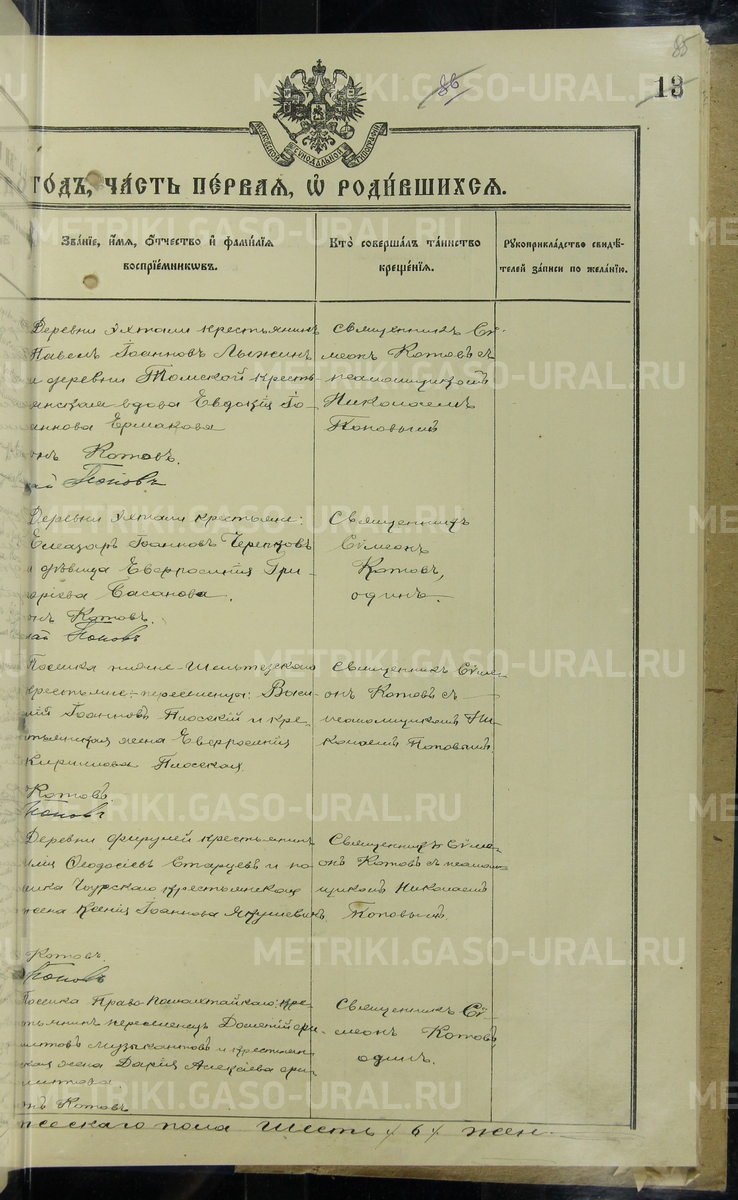 85
86
13
МОСКОВСКОЙ СѴНОДАЛЬНОЙ ТИПОГРАФІИ
го́дъ, ча́сть пе́рвая, ѡ҆ роди́вшихсѧ.
Зва́нїе, и҆́мѧ, ѻ҆́тчество и҆ фами́лїѧ
воспрїе́мникѡвъ.
Кто̀ соверша́лъ та́инство
креще́нїѧ.
Рꙋкоприкла́дство свидѣ́-
телей за́писи по жела́нїю.
Деревни Ухтали крестьянинъ
Павелъ Іоанновъ Лыжинъ
и деревни Томской кресть-
янская вдова Евдокія Іо-
аннова Ермакова
Священникъ Сѵ-
меонъ Котовъ съ
псаломщикомъ
Николаемъ
Поповымъ
онъ Котовъ.
Поповъ
Деревни Ухтали крестьяне:
Елеазаръ Іоанновъ
и дѣвица Евфросинія Гри-
горіева Сасанова.
Священникъ
Сѵмеонъ
Котовъ,
одинъ.
онъ Котовъ.
лай Поповъ
Поселка
крестьяне-переселенцы: Васи-
лій Іоанновъ Плоскій и кре-
стьянская жена Евфросинія
Кириллова Плоская.
Священникъ Сѵме-
онъ Котовъ съ
псаломщикомъ Ни-
колаемъ Поповымъ.
Котовъ.
Поповъ
Деревни крестьянинъ
Ѳеодосіевъ Старцевъ и по-
селка крестьянская
жена Ксенія Іоаннова Якушевичъ.
Священникъ Сѵме-
онъ Котовъ съ псалом-
щикомъ Николаемъ
Поповымъ.
Котовъ.
Поповъ
Поселка кре-
стьянинъ переселенецъ
Музыкантовъ и крестьян-
ская жена Дарія Алексіева
Священникъ Сѵ-
меонъ Котовъ,
одинъ.
онъ Котовъ
жескаго пола шесть /6/ жен
METRIKI.GASO-URAL.RU